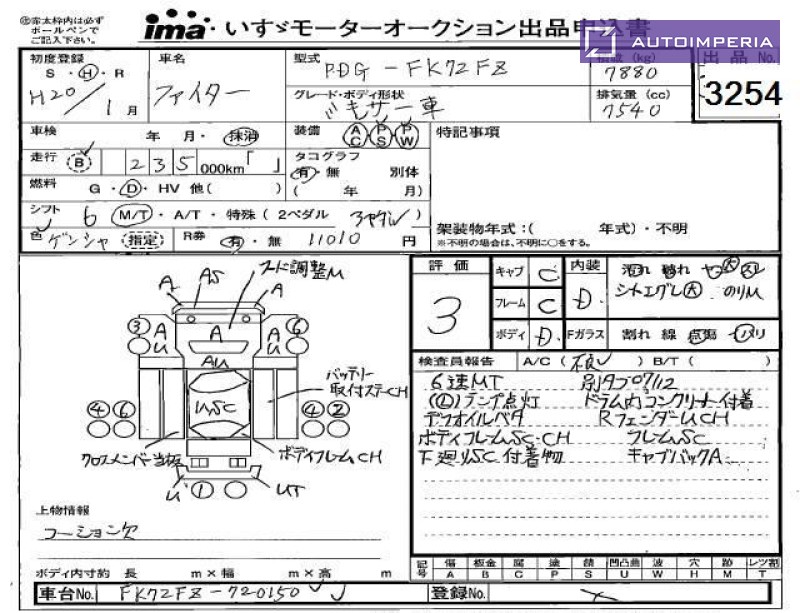 ㊟赤太枠内は必ず
ボールペンで
ご記入下さい。
ima いすゞモーターオークション出品申込書
AUTOIMPERIA
初度登録 車名 型式 PDG-FK72FZ (kg) 出品No.
S・H・R ファイター 7880 3254
H20/1月 グレード・ボディ形状 ミキサー車 排気量(cc) 7540
車検 年 月・抹消 装備 AC PS PW 特記事項
走行 B 235000km「 」 タコグラフ 有・無 別体
燃料 G・D・HV 他( ) ( 年 月)
シフト 6 M/T・A/T・特殊(2ペダル 3ペダル) 架装物年式:( 年式)・不明
色 ゲンシャ 指定 R券 有・無 11010円 ※不明の場合は、不明に○をする。
評価 3
キャブ C 内装 D 汚れ 破れ ヤケ大 スレ
フレーム C シートエグレ大 のりM
ボディ D Fガラス 割れ 線 点傷 ハリ
検査員報告 A/C(不良)B/T( )
6速MT 別タブ07/12
ランプ点灯 ドラム内コンクリート付着
RフェンダーUCH
ボディフレームSC・CH フレームSC
下廻りSC 付着物 キャブバックA
A AS A
3 A U A A U 6
AU
USC
4 6 4 2
U 1 UT
スーに調整M
バッテリー
取付ステーCH
クロスメンバー当板
ボディフレームCH
上物情報
コーション欠
ボディ内寸約 長 m×幅 m×高 m
記号 傷A 板金B 腐C 塗P 錆S 凹凸曲U 波W 穴H 跡M レンズ割T
車台No. FK72FZ-720150 登録No.